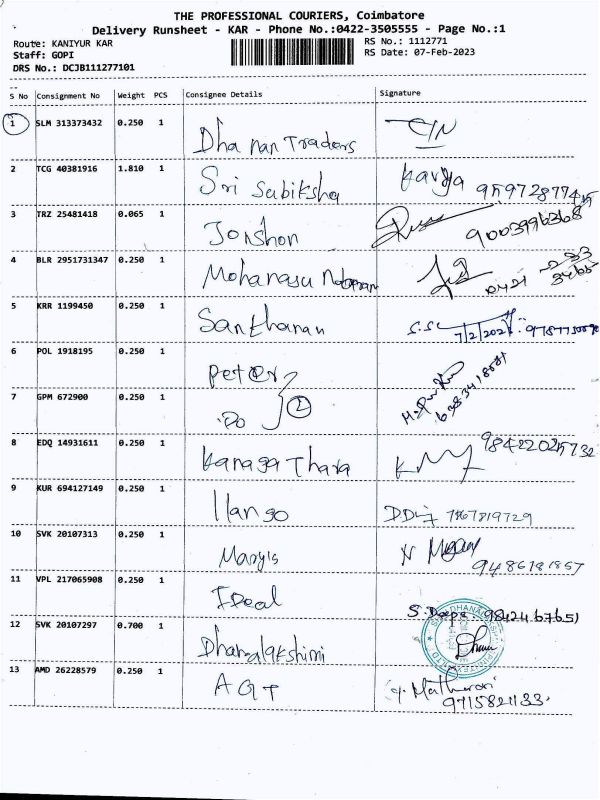 THE PROFESSIONAL COURIERS, Coimbatore
Delivery Runsheet - KAR - Phone No.:0422-3505555 - Page No.:1
Route: KANIYUR KAR RS No.: 1112771
Staff: GOPI RS Date: 07-Feb-2023
DRS No.: DCJB111277101
S No Consignment No Weight PCS Consignee Details Signature
1 SLM 313373432 0.250 1 Dhanan Traders
2 TCG 40381916 1.810 1 Sri Subiksha Kavya
3 TRZ 25481418 0.065 1 Joishon 9003996368
4 BLR 2951731347 0.250 1 Mohanasu
5 KRR 1199450 0.250 1 Santhanan
6 POL 1918195 0.250 1 Peter
7 GPM 672900 0.250 1 Do 2
8 EDQ 14931611 0.250 1 Kanaga Thara
9 KUR 694127149 0.250 1 Ilango 7867819729
10 SVK 20107313 0.250 1 9486181857
11 VPL 217065908 0.250 1 Ideal S. Deepa 9842467651
12 SVK 20107297 0.700 1 Dhanalakshimi
13 AMD 26228579 0.250 1 AGT
9715821133